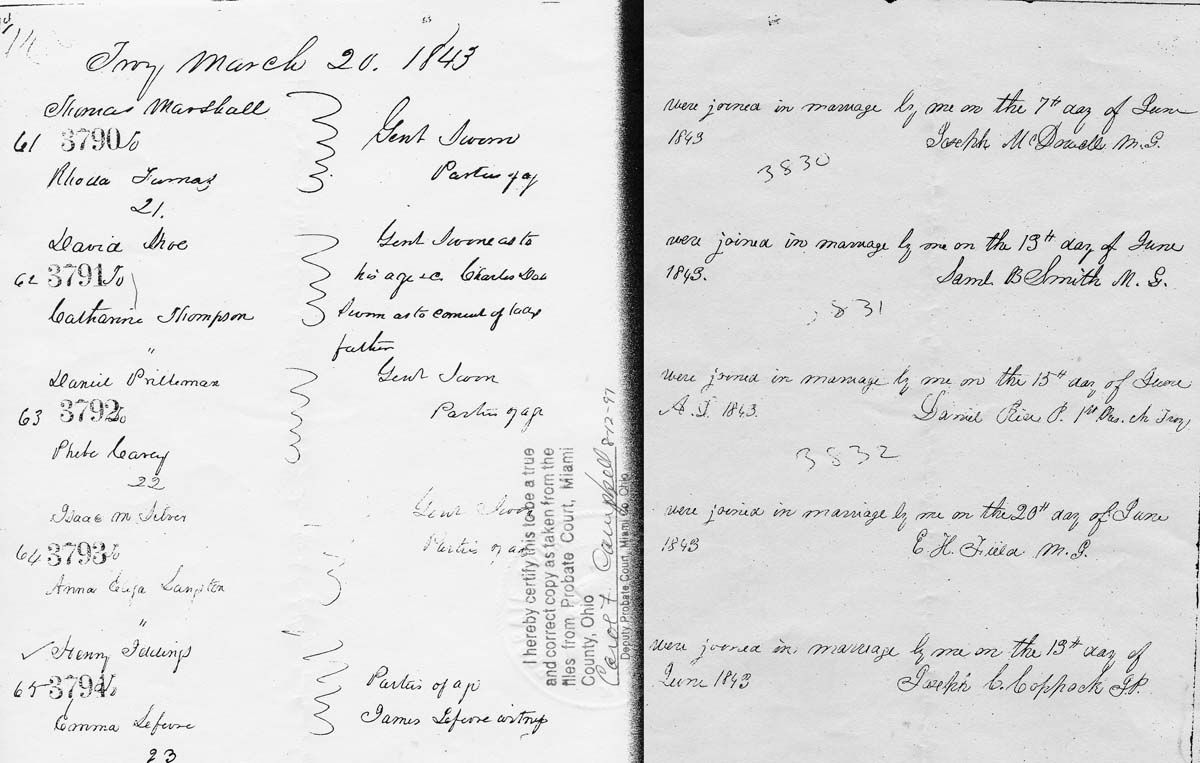 Troy March 20. 1843
Thomas Marshall
61 3790 to
Gent Sworn
Rhoda Furnas
Parties of age
21.
were joined in marriage by me on the 7th day of June
1843 Joseph McDowell M.G.
3830
David Shoe
Gent Sworne as to
62 3791 to
his age &c. Charles
Catharine Thompson
Sworn as to consent of
"
father
were joined in marriage by me on the 13th day of June
1843. Saml B Smith M. G.
831
Daniel Prilleman
Gent Sworn
63 3792 to
Parties of age
Phebe Carey
22
were joined in marriage by me on the 15th day of June
A.D. 1843. Daniel Rice 1st Pres. Ch Troy
3832
Isaac M. Silver
Gent Sworn
64 3793 to
Parties of age
Anna Eliza Langston
"
were joined in marriage by me on the 20th day of June
1843 E H. Field M.G.
Henry Iddings
65 3794 to
Parties of age
Emma Lefevre
James Lefevre witness
23
were joined in marriage by me on the 13th day of
June 1843 Joseph Coppock J.P.
I hereby certify this to be a true
and correct copy as taken from the
files from Probate Court, Miami
County, Ohio
Carol F Campbell 8-12-97
Deputy Probate Court, Miami Co. Ohio